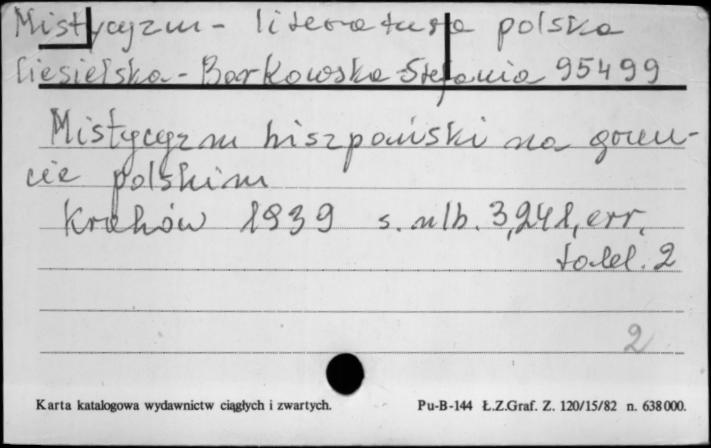 Mistycyzm - literatura polska
Ciesielska-Borkowska Stefania 95499
Mistycyzm hiszpański na grun-
cie polskim
Kraków 1939 s. nlb. 3, 241, err.
tabl. 2
2
Karta katalogowa wydawnictw ciągłych i zwartych. Pu-B-144 Ł.Z.Graf. Z. 120/15/82 n. 638000.